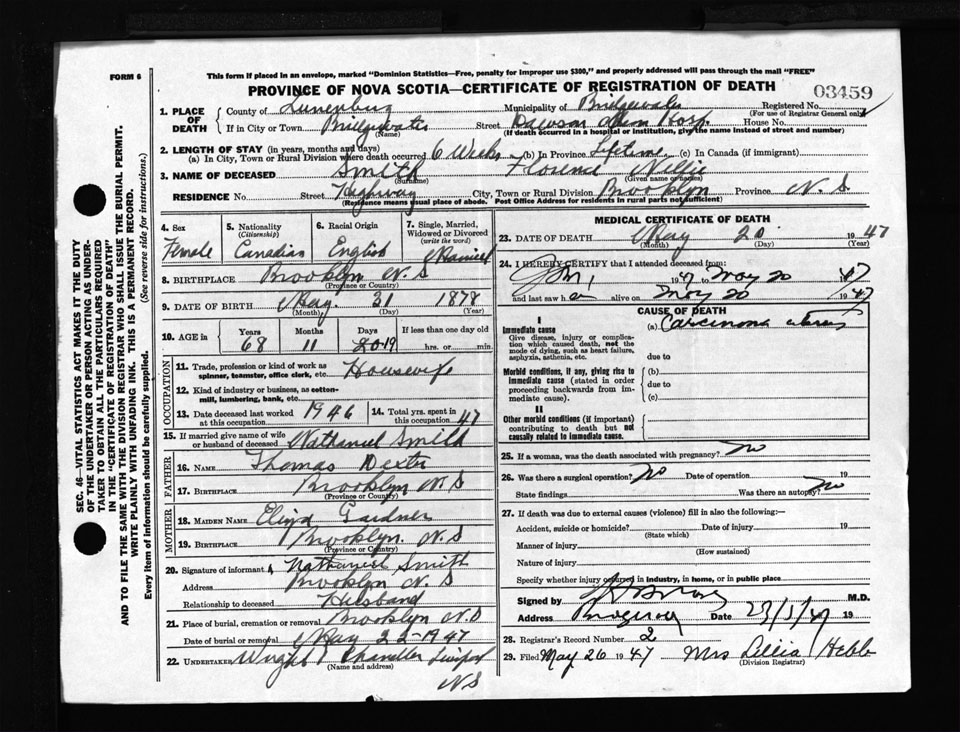 FORM 6
This form if placed in an envelope, marked "Dominion Statistics—Free, penalty for improper use $300," and properly addressed will pass through the mail "FREE"
PROVINCE OF NOVA SCOTIA—CERTIFICATE OF REGISTRATION OF DEATH
03459
1. PLACE OF DEATH County of Lunenburg Municipality of Bridgewater Registered No.
(For use of Registrar General only)
If in City or Town Bridgewater Street Dawson Mem Hosp House No.
(Name) (If death occurred in a hospital or institution, give the name instead of street and number)
2. LENGTH OF STAY (in years, months and days)
(a) In City, Town or Rural Division where death occurred 6 Weeks (b) In Province Lifetime (c) In Canada (if immigrant)
3. NAME OF DECEASED Smith Nellie
(Surname) (Given name or names)
RESIDENCE No. Street Highway City, Town or Rural Division Brooklyn Province N. S
(Residence means usual place of abode. Post Office Address for residents in rural parts not sufficient)
4. Sex 5. Nationality (Citizenship) 6. Racial Origin 7. Single, Married, Widowed or Divorced (write the word)
Female Canadian English Married
8. BIRTHPLACE Brooklyn N. S
(Province or Country)
9. DATE OF BIRTH May. 31 1878
(Month) (Day) (Year)
10. AGE in Years Months Days If less than one day old
68 11 20-19 hrs. or min.
OCCUPATION
11. Trade, profession or kind of work as spinner, teamster, office clerk, etc. Housewife
12. Kind of industry or business, as cotton-mill, lumbering, bank, etc.
13. Date deceased last worked at this occupation 1946 14. Total yrs. spent in this occupation 47
15. If married give name of wife or husband of deceased Nathaniel Smith
FATHER
16. NAME Thomas Dexter
17. BIRTHPLACE Brooklyn N. S
(Province or Country)
MOTHER
18. MAIDEN NAME Gardner
19. BIRTHPLACE Brooklyn. N. S
(Province or Country)
20. Signature of informant Nathaniel Smith
Address Brooklyn N. S
Relationship to deceased Husband
21. Place of burial, cremation or removal Brooklyn N.S
Date of burial or removal May 22-1947
22. UNDERTAKER Wright Chandler Liverpool
(Name and address)
N S
MEDICAL CERTIFICATE OF DEATH
23. DATE OF DEATH May 20 1947
(Month) (Day) (Year)
24. I HEREBY CERTIFY that I attended deceased from:
19 47 to May 20 1947
and last saw h er alive on May 20 1947
CAUSE OF DEATH
I
Immediate cause (a) Carcinoma uterus
Give disease, injury or complication which caused death, not the mode of dying, such as heart failure, asphyxia, asthenia, etc.
due to
Morbid conditions, if any, giving rise to immediate cause (stated in order proceeding backwards from immediate cause).
(b)
due to
(c)
II
Other morbid conditions (if important) contributing to death but not causally related to immediate cause.
25. If a woman, was the death associated with pregnancy? no
26. Was there a surgical operation? No Date of operation 19
State findings Was there an autopsy? no
27. If death was due to external causes (violence) fill in also the following:—
Accident, suicide or homicide? Date of injury 19
(State which)
Manner of injury
(How sustained)
Nature of injury
Specify whether injury occurred in industry, in home, or in public place
Signed by M.D.
Address Date 19
28. Registrar's Record Number 2
29. Filed May 26 1947 Mrs Lillia Hebb
(Division Registrar)
SEC. 46—VITAL STATISTICS ACT MAKES IT THE DUTY
OF THE UNDERTAKER OR PERSON ACTING AS UNDER-
TAKER TO OBTAIN ALL THE PARTICULARS REQUIRED
IN THE "CERTIFICATE OF REGISTRATION OF DEATH"
AND TO FILE THE SAME WITH THE DIVISION REGISTRAR WHO SHALL ISSUE THE BURIAL PERMIT.
WRITE PLAINLY WITH UNFADING INK. THIS IS A PERMANENT RECORD.
Every item of information should be carefully supplied. (See reverse side for instructions.)